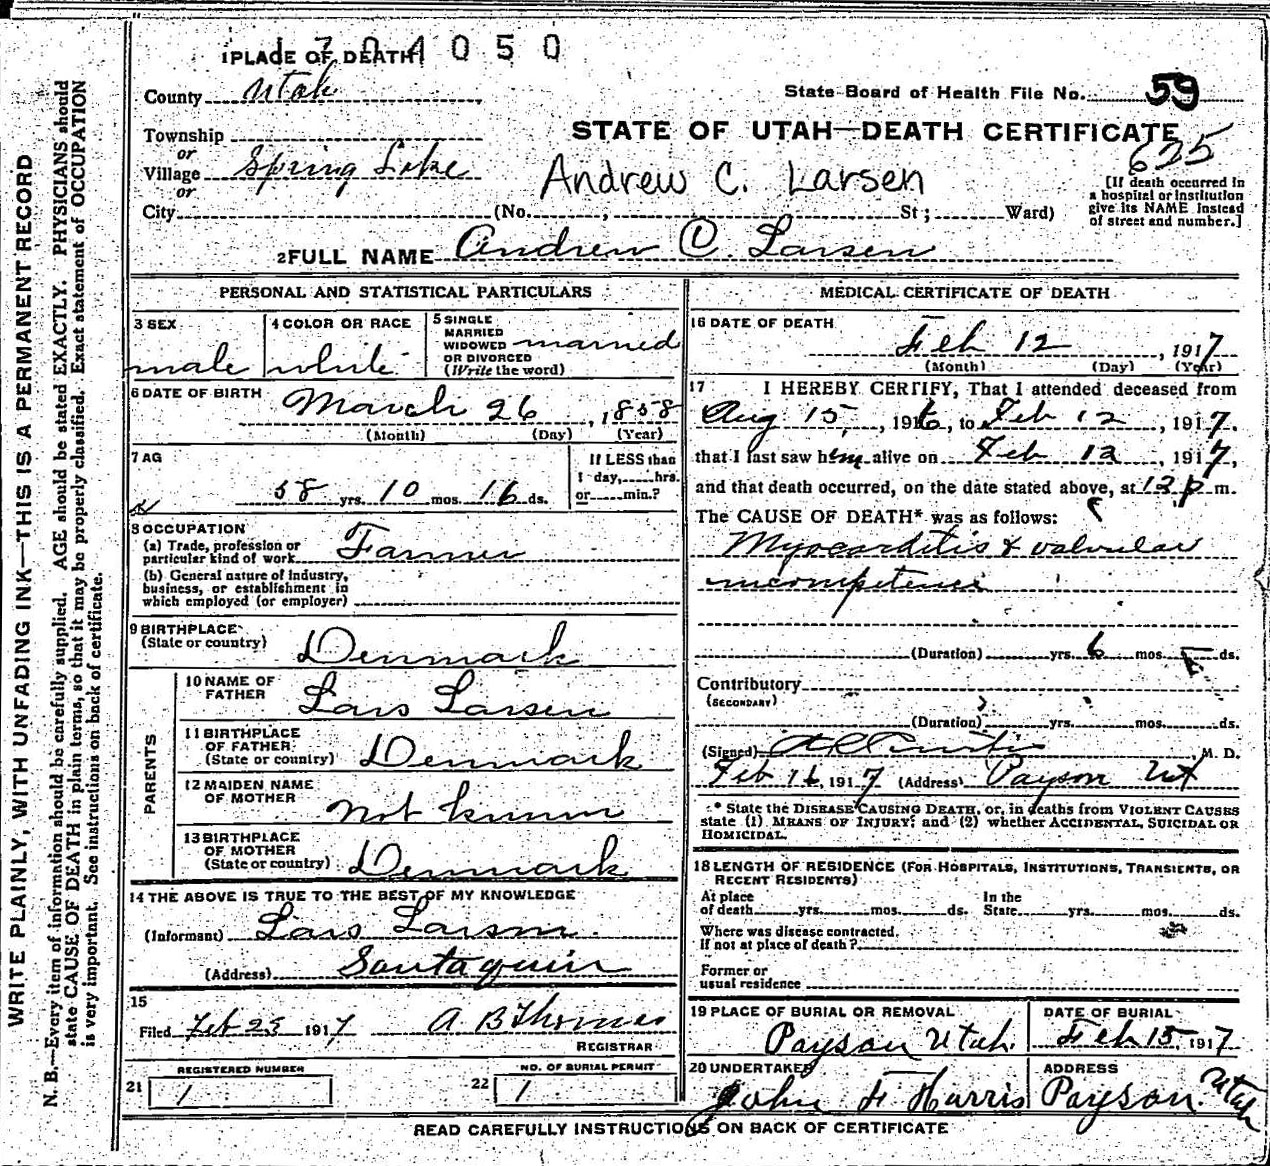 1 PLACE OF DEATH 1704050
County Utah
State Board of Health File No. 59
Township
or
STATE OF UTAH—DEATH CERTIFICATE
625
Village Spring Lake
or
Andrew C. Larsen
[If death occurred in
a hospital or institution
give its NAME instead
of street and number.]
City (No. , St; Ward)
2 FULL NAME Andrew C. Larsen
PERSONAL AND STATISTICAL PARTICULARS
3 SEX
male
4 COLOR OR RACE
white
5 SINGLE
MARRIED
WIDOWED
OR DIVORCED
(Write the word)
married
6 DATE OF BIRTH
March 26, 1858
(Month) (Day) (Year)
7 AG
58 yrs. 10 mos. 16 ds.
If LESS than
1 day, hrs.
or min.?
8 OCCUPATION
(a) Trade, profession or
particular kind of work Farmer
(b) General nature of industry,
business, or establishment in
which employed (or employer)
9 BIRTHPLACE
(State or country) Denmark
PARENTS
10 NAME OF
FATHER Lars Larsen
11 BIRTHPLACE
OF FATHER
(State or country) Denmark
12 MAIDEN NAME
OF MOTHER not known
13 BIRTHPLACE
OF MOTHER
(State or country) Denmark
14 THE ABOVE IS TRUE TO THE BEST OF MY KNOWLEDGE
(Informant) Lars Larson.
(Address) Santaquin
15
Filed Feb 25 1917 A B Thomas
REGISTRAR
REGISTERED NUMBER
21 1
NO. OF BURIAL PERMIT
22 1
MEDICAL CERTIFICATE OF DEATH
16 DATE OF DEATH
Feb 12, 1917
(Month) (Day) (Year)
17 I HEREBY CERTIFY, That I attended deceased from
Aug 15, 1916, to Feb 12, 1917.
that I last saw him alive on Feb 12, 1917,
and that death occurred, on the date stated above, at 12 p m.
The CAUSE OF DEATH* was as follows:
Myocarditis & valvular
incompetence
(Duration) yrs. 6 mos. ds.
Contributory
(SECONDARY)
(Duration) yrs. mos. ds.
(Signed) Curtis M. D.
Feb 16, 1917 (Address) Payson Ut
* State the DISEASE CAUSING DEATH, or, in deaths from VIOLENT CAUSES
state (1) MEANS OF INJURY; and (2) whether ACCIDENTAL, SUICIDAL OR
HOMICIDAL.
18 LENGTH OF RESIDENCE (FOR HOSPITALS, INSTITUTIONS, TRANSIENTS, OR
RECENT RESIDENTS)
At place
of death yrs. mos. ds.
In the
State yrs. mos. ds.
Where was disease contracted.
If not at place of death?
Former or
usual residence
19 PLACE OF BURIAL OR REMOVAL
Payson Utah.
DATE OF BURIAL
Feb 15, 1917
20 UNDERTAKER
John F Harris
ADDRESS
Payson Utah
READ CAREFULLY INSTRUCTIONS ON BACK OF CERTIFICATE
WRITE PLAINLY, WITH UNFADING INK—THIS IS A PERMANENT RECORD
N. B.—Every item of information should be carefully supplied. AGE should be stated EXACTLY. PHYSICIANS should
state CAUSE OF DEATH in plain terms, so that it may be properly classified. Exact statement of OCCUPATION
is very important. See instructions on back of certificate.